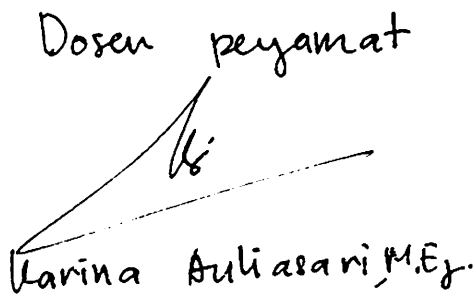 Dosen peyamat
Karina Auliasari, M.Eg.